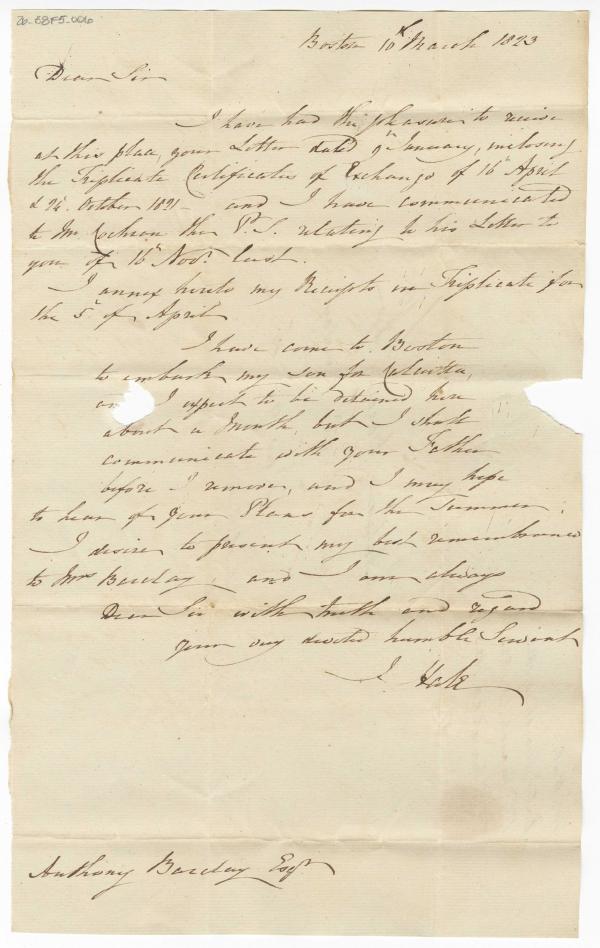 26-E8F5-006
Boston 10th March 1823
Dear Sir
I have had the pleasure to receive
at this place, your Letter dated 9th January, inclosing
the Triplicate Certificates of Exchange of 16th April
& 24. October 1821 - and I have communicated
to Mr. Cochran the P.S. relating to his Letter to
you of 16th Novr. last.
I annex hereto my Receipts in Triplicate for
the 5th of April
I have come to Boston
to embark my son for Calcutta,
I expect to be detained here
about a Month, but I shall
communicate with your Father
before I remove, and I may hope
to hear of your Plans for the Summer.
I desire to present my best remembrance
to Mrs Barclay, and I am always
Dear Sir with truth and regard
your very devoted humble Servant
J. Hale
Anthony Barclay Esqr